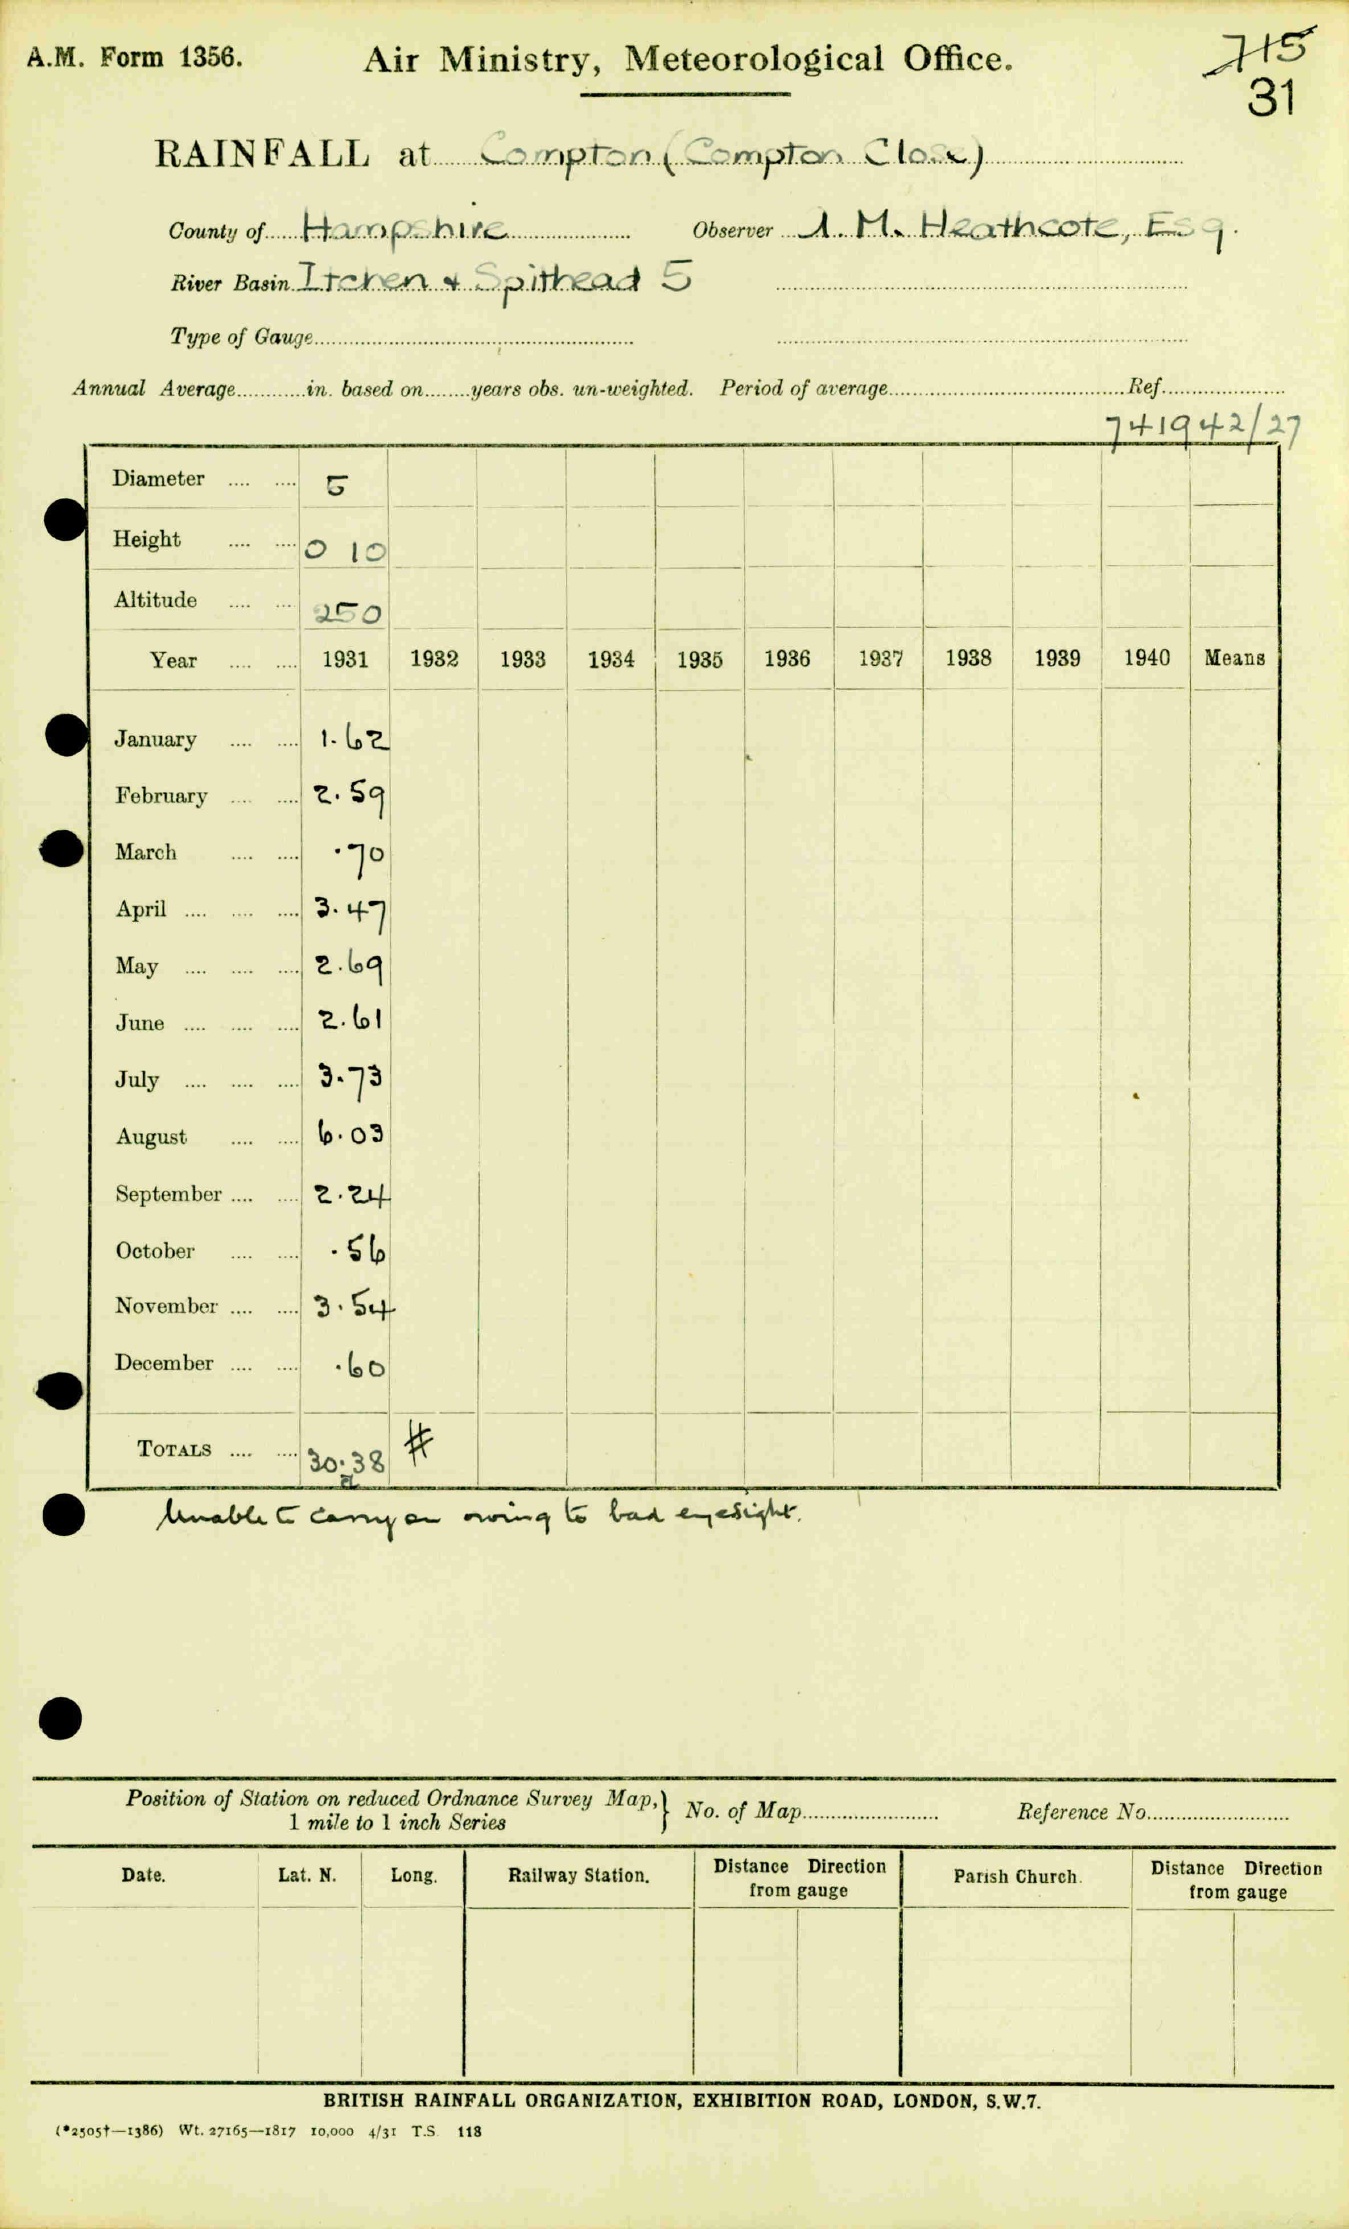 A.M. Form 1356.
Air Ministry, Meteorological Office.
715
31
RAINFALL at Compton (Compton Close)
County of Hampshire Observer J. M. Heathcote, Esq.
River Basin Itchen & Spithead 5
Type of Gauge
Annual Average in. based on years obs. un-weighted. Period of average Ref.
741942/27
Diameter 5
Height 0 10
Altitude 250
Year 1931 1932 1933 1934 1935 1936 1937 1938 1939 1940 Means
January 1.62
February 2.59
March .70
April 3.47
May 2.69
June 2.61
July 3.73
August 6.03
September 2.24
October .56
November 3.54
December .60
TOTALS 30.38 #
a
Unable to carry on owing to bad eyesight.
Position of Station on reduced Ordnance Survey Map,} No. of Map Reference No.
1 mile to 1 inch Series
Date. Lat. N. Long. Railway Station. Distance Direction from gauge Parish Church. Distance Direction from gauge
BRITISH RAINFALL ORGANIZATION, EXHIBITION ROAD, LONDON, S.W.7.
(*2505†—1386) Wt. 27165—1817 10,000 4/31 T.S. 118